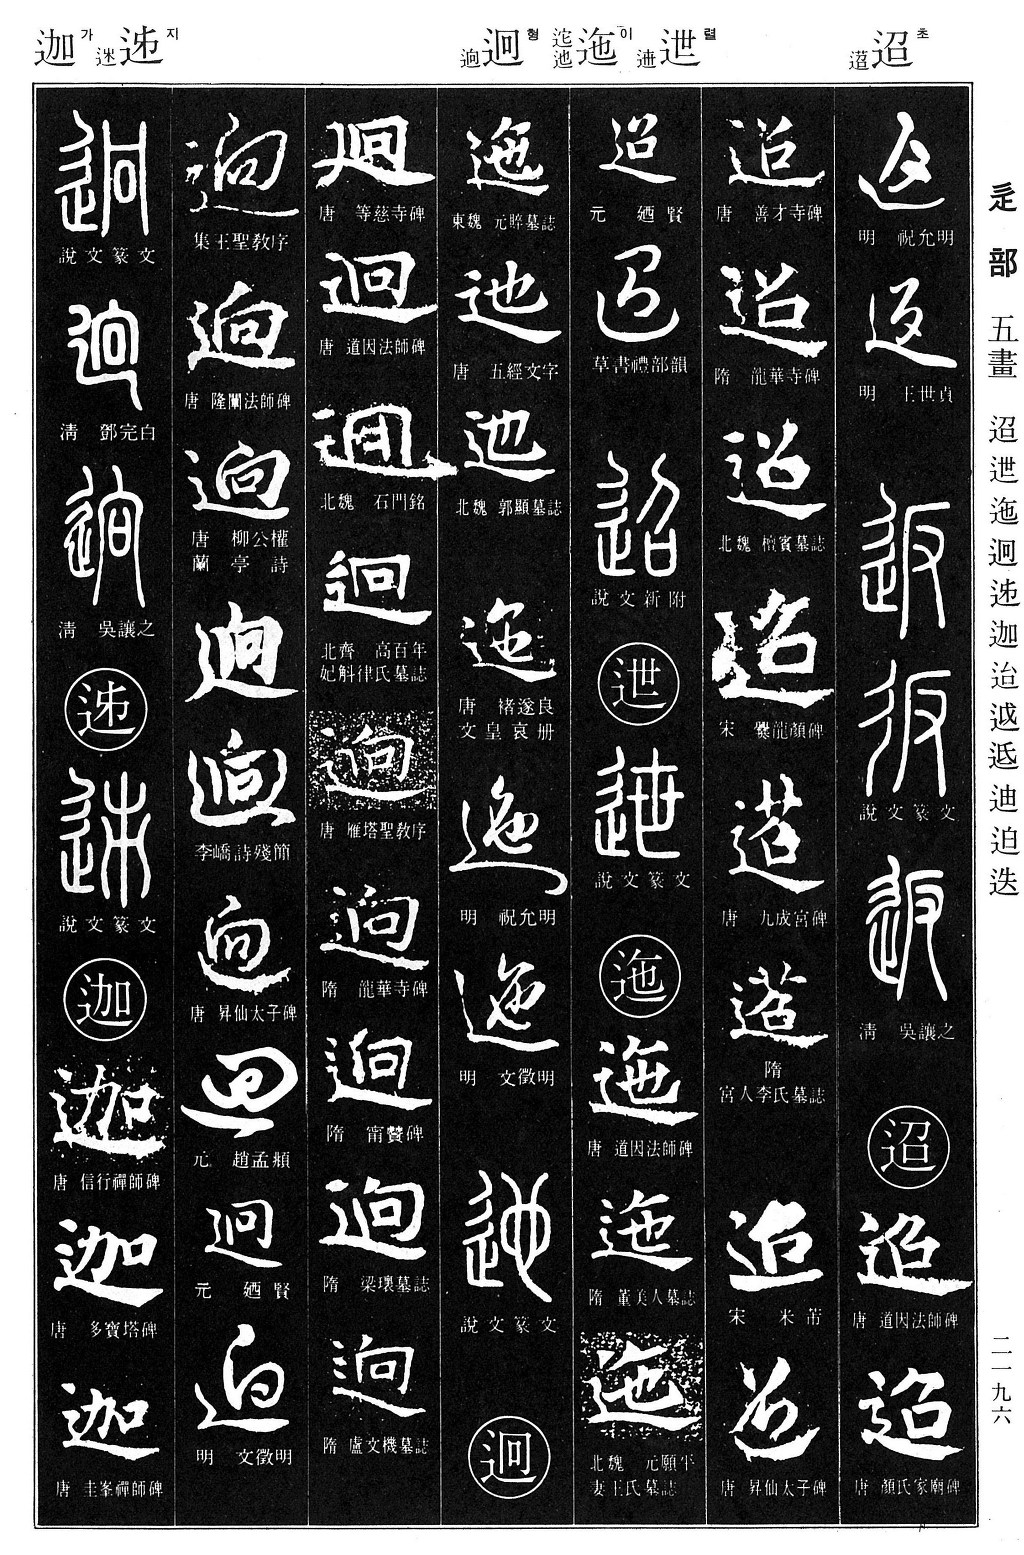 迢 초
迣 렬
迤 이
迥 형
迦 가
辵部 五畫 迢迣迤迥迦迨迪迫迭
二一九六
返
明 祝允明
返
明 王世貞
返
返
說文篆文
返
淸 吳讓之
迢
迢
唐 道因法師碑
迢
唐 顏氏家廟碑
迢
唐 善才寺碑
迢
隋 龍華寺碑
迢
北魏 檀賓墓誌
迢
宋 爨龍顏碑
唐 九成宮碑
隋
宮人李氏墓誌
迢
宋 米芾
迢
唐 昇仙太子碑
迢
元 迺賢
迢
草書禮部韻
迢
說文新附
迣
迣
說文篆文
迤
迤
唐 道因法師碑
迤
隋 董美人墓誌
迤
北魏 元願平
妻王氏墓誌
迤
東魏 元賥墓誌
唐 五經文字
北魏 郭顯墓誌
迤
唐 褚遂良
文皇哀册
迤
明 祝允明
迤
明 文徵明
說文篆文
迥
迥
唐 等慈寺碑
迥
唐 道因法師碑
迥
北魏 石門銘
迥
北齊 高百年
妃斛律氏墓誌
唐 雁塔聖敎序
隋 龍華寺碑
隋 甯贙碑
隋 梁瓌墓誌
隋 盧文機墓誌
集王聖敎序
唐 隆闡法師碑
唐 柳公權
蘭亭詩
李嶠詩殘簡
唐 昇仙太子碑
迥
元 趙孟頫
迥
元 迺賢
明 文徵明
迥
說文篆文
淸 鄧完白
淸 吳讓之
說文篆文
迦
迦
唐 信行禪師碑
迦
唐 多寶塔碑
迦
唐 圭峯禪師碑